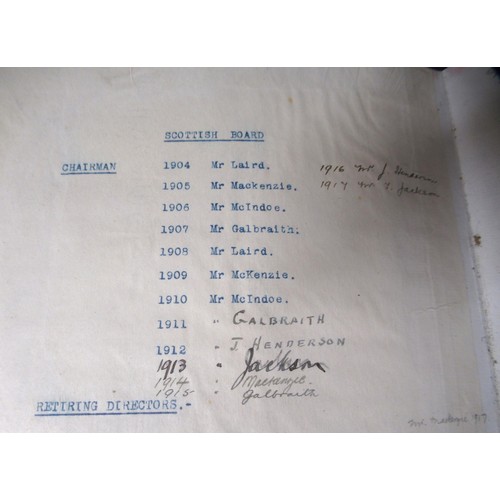 SCOTTISH BOARD
CHAIRMAN 1904 Mr Laird. 1916 Mr. J. Henderson
1905 Mr Mackenzie. 1917 Mr T. Jackson
1906 Mr McIndoe.
1907 Mr Galbraith.
1908 Mr Laird.
1909 Mr McKenzie.
1910 Mr McIndoe.
1911 " GALBRAITH
1912 " J HENDERSON
1913 " Jackson
1914 " Mackenzie.
1915 " Galbraith
RETIRING DIRECTORS.-
Mr Mackenzie 917